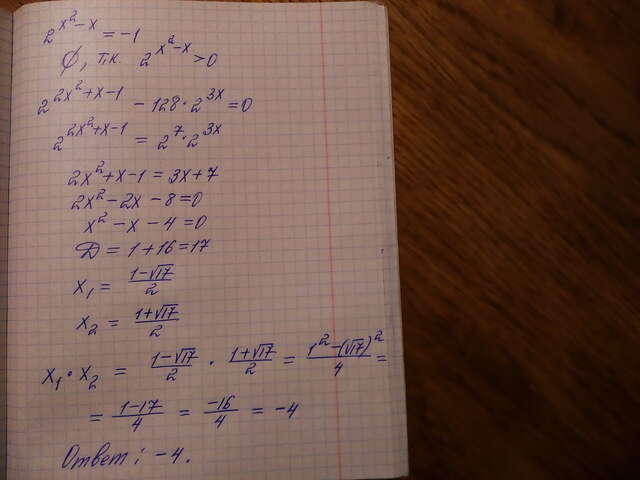 2^{x²-x} = -1
∅, т.к. 2^{x²-x} > 0
2^{2x²+x-1} - 128·2^{3x} = 0
2^{2x²+x-1} = 2^7·2^{3x}
2x²+x-1 = 3x+7
2x²-2x-8=0
x²-x-4=0
D = 1+16=17
x₁ = (1-√17)/2
x₂ = (1+√17)/2
x₁·x₂ = (1-√17)/2 · (1+√17)/2 = (1²-(√17)²)/4 =
= (1-17)/4 = -16/4 = -4
Ответ: -4.